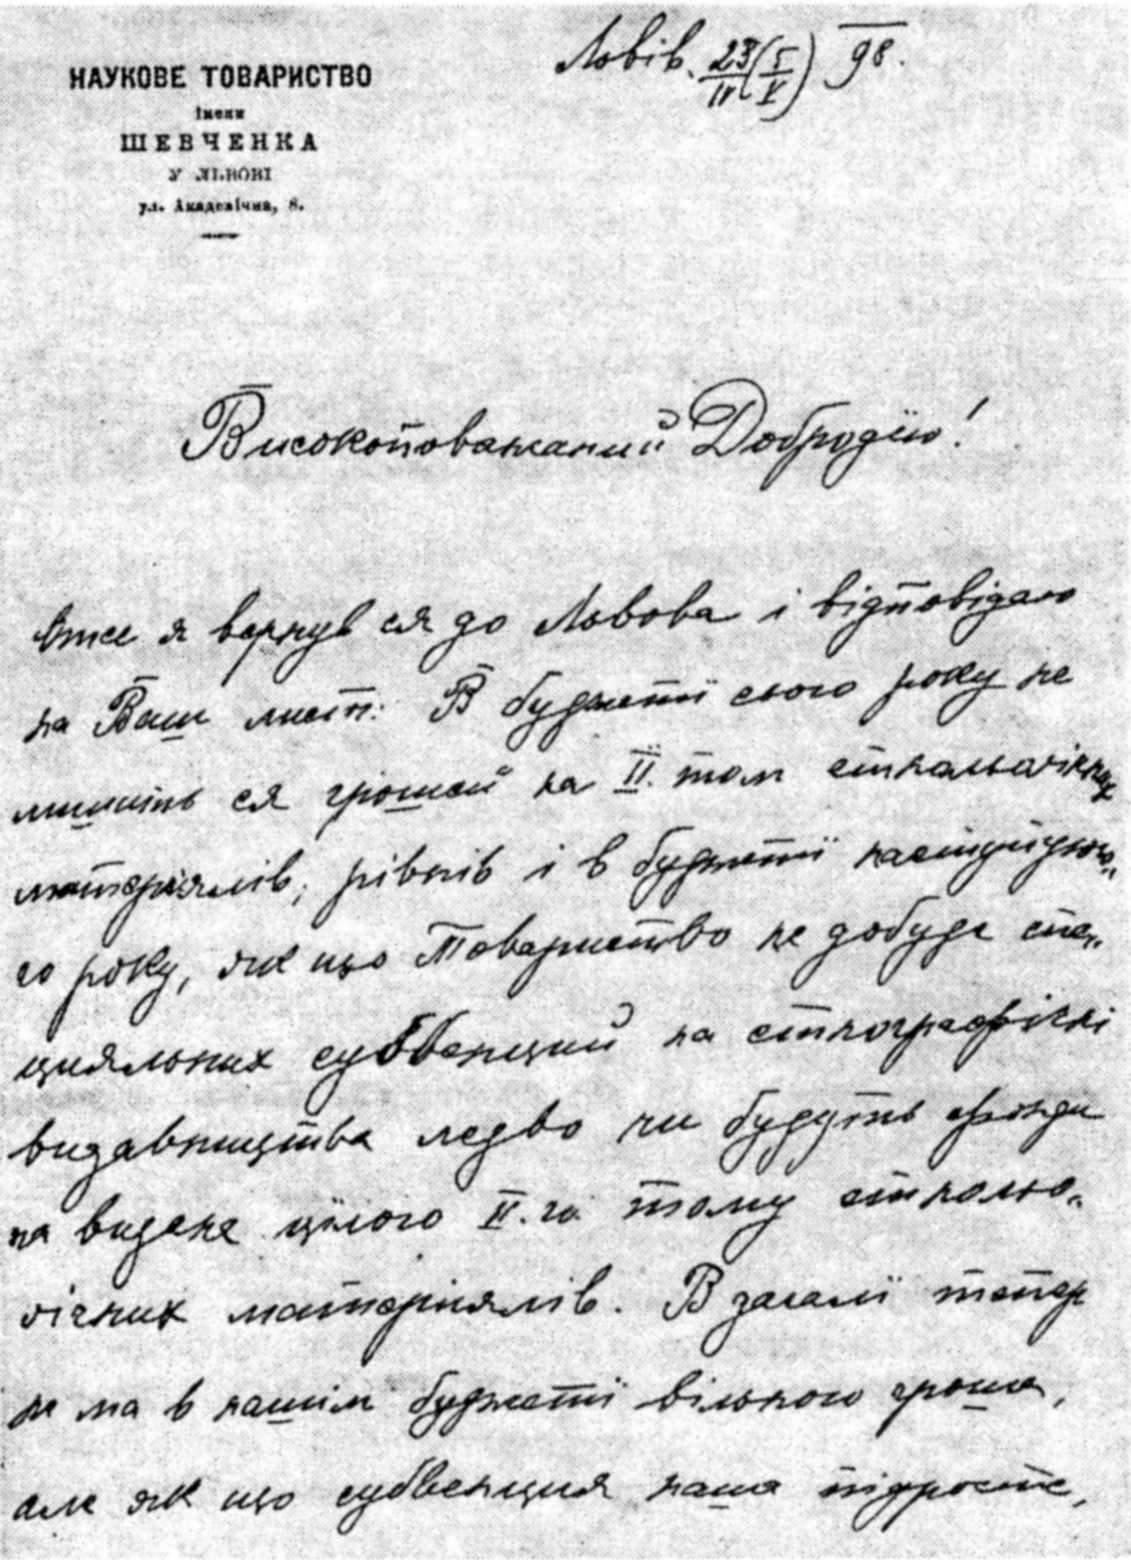 НАУКОВЕ ТОВАРИСТВО
імени
ШЕВЧЕНКА
У ЛЬВОВІ
ул. Академічна, 8.
Львів. 23/IV (5/V) 98.
Високоповажаний Добродїю!
Вже я вернув ся до Львова і відповідаю
на Ваш лист: В буджетї сього року не
лишить ся грошей на II. том етнольогічних
материялів; рівнїв і в буджетї наступую-
го року, як що Товариство не добуде спе-
цияльних субвенций на етнографічні
видавництва ледво чи будуть фонди
на виданє цїлого II.го тому етнольо-
гічних материялів. В загалї тепер
не ма в нашім буджетї вільного гроша,
але як що субвенция наша підросте,